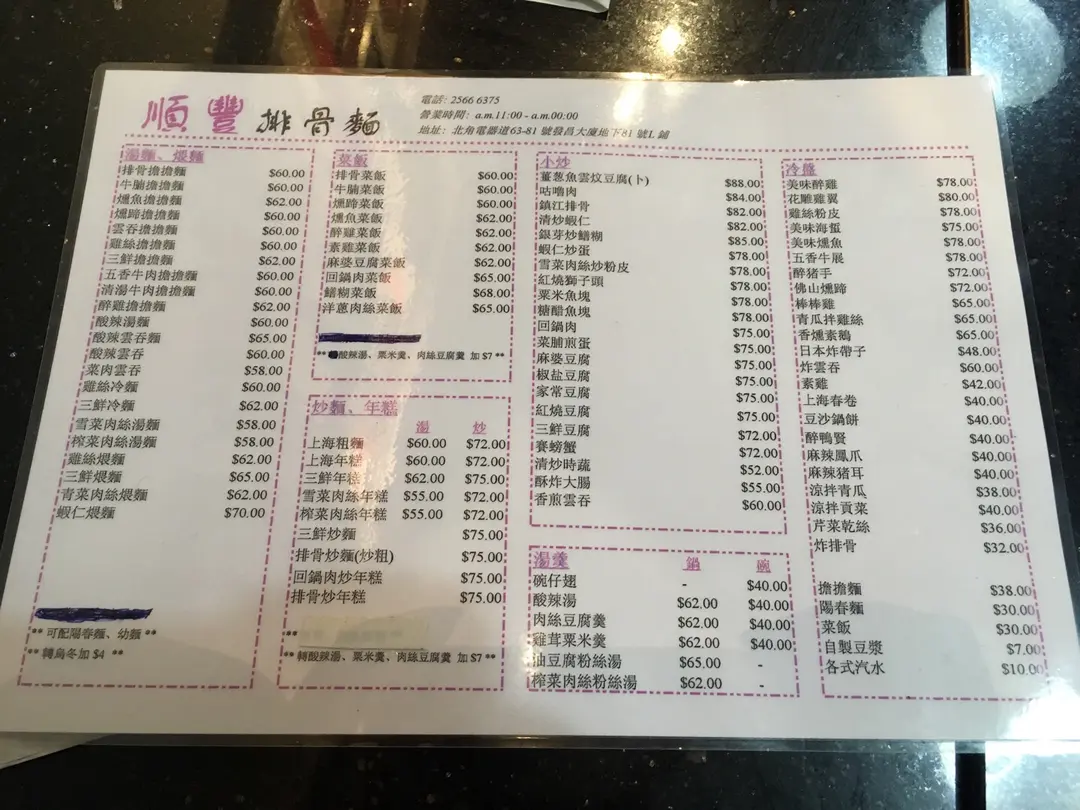 順豐排骨麵
電話: 2566 6375
營業時間: a.m.11:00 - a.m.00:00
地址: 北角電器道63-81 號發昌大廈地下81 號L 鋪
湯麵、煨麵
排骨擔擔麵 $60.00
牛腩擔擔麵 $60.00
燻魚擔擔麵 $62.00
燻蹄擔擔麵 $60.00
雲吞擔擔麵 $60.00
雞絲擔擔麵 $60.00
三鮮擔擔麵 $62.00
五香牛肉擔擔麵 $60.00
清湯牛肉擔擔麵 $60.00
醉雞擔擔麵 $62.00
酸辣湯麵 $60.00
酸辣雲吞麵 $65.00
酸辣雲吞 $60.00
菜肉雲吞 $58.00
雞絲冷麵 $60.00
三鮮冷麵 $62.00
雪菜肉絲湯麵 $58.00
榨菜肉絲湯麵 $58.00
雞絲煨麵 $62.00
三鮮煨麵 $65.00
青菜肉絲煨麵 $62.00
蝦仁煨麵 $70.00
** 可配陽春麵、幼麵 **
** 轉烏冬加 $4 **
菜飯
排骨菜飯 $60.00
牛腩菜飯 $60.00
燻蹄菜飯 $60.00
燻魚菜飯 $62.00
醉雞菜飯 $62.00
素雞菜飯 $62.00
麻婆豆腐菜飯 $62.00
回鍋肉菜飯 $65.00
鱔糊菜飯 $68.00
洋蔥肉絲菜飯 $65.00
** 酸辣湯、粟米羹、肉絲豆腐羹 加 $7 **
炒麵、年糕
湯 炒
上海粗麵 $60.00 $72.00
上海年糕 $60.00 $72.00
三鮮年糕 $62.00 $75.00
雪菜肉絲年糕 $55.00 $72.00
榨菜肉絲年糕 $55.00 $72.00
三鮮炒麵 $75.00
排骨炒麵(炒粗) $75.00
回鍋肉炒年糕 $75.00
排骨炒年糕 $75.00
**
** 轉酸辣湯、粟米羹、肉絲豆腐羹 加 $7 **
小炒
薑蔥魚雲炆豆腐(卜) $88.00
咕嚕肉 $84.00
鎮江排骨 $82.00
清炒蝦仁 $82.00
銀芽炒鱔糊 $85.00
蝦仁炒蛋 $78.00
雪菜肉絲炒粉皮 $78.00
紅燒獅子頭 $78.00
粟米魚塊 $78.00
糖醋魚塊 $78.00
回鍋肉 $75.00
菜脯煎蛋 $75.00
麻婆豆腐 $75.00
椒鹽豆腐 $75.00
家常豆腐 $75.00
紅燒豆腐 $75.00
三鮮豆腐 $72.00
賽螃蟹 $72.00
清炒時蔬 $52.00
酥炸大腸 $55.00
香煎雲吞 $60.00
湯羹 鍋 碗
碗仔翅 - $40.00
酸辣湯 $62.00 $40.00
肉絲豆腐羹 $62.00 $40.00
雞茸粟米羹 $62.00 $40.00
油豆腐粉絲湯 $65.00 -
榨菜肉絲粉絲湯 $62.00 -
冷盤
美味醉雞 $78.00
花雕雞翼 $80.00
雞絲粉皮 $78.00
美味海蜇 $75.00
美味燻魚 $78.00
五香牛展 $78.00
醉豬手 $72.00
佛山燻蹄 $72.00
棒棒雞 $65.00
青瓜拌雞絲 $65.00
香燻素鵝 $65.00
日本炸帶子 $48.00
炸雲吞 $60.00
素雞 $42.00
上海春卷 $40.00
豆沙鍋餅 $40.00
醉鴨賢 $40.00
麻辣鳳爪 $40.00
麻辣豬耳 $40.00
涼拌青瓜 $38.00
涼拌貢菜 $40.00
芹菜乾絲 $36.00
炸排骨 $32.00
擔擔麵 $38.00
陽春麵 $30.00
菜飯 $30.00
自製豆漿 $7.00
各式汽水 $10.00